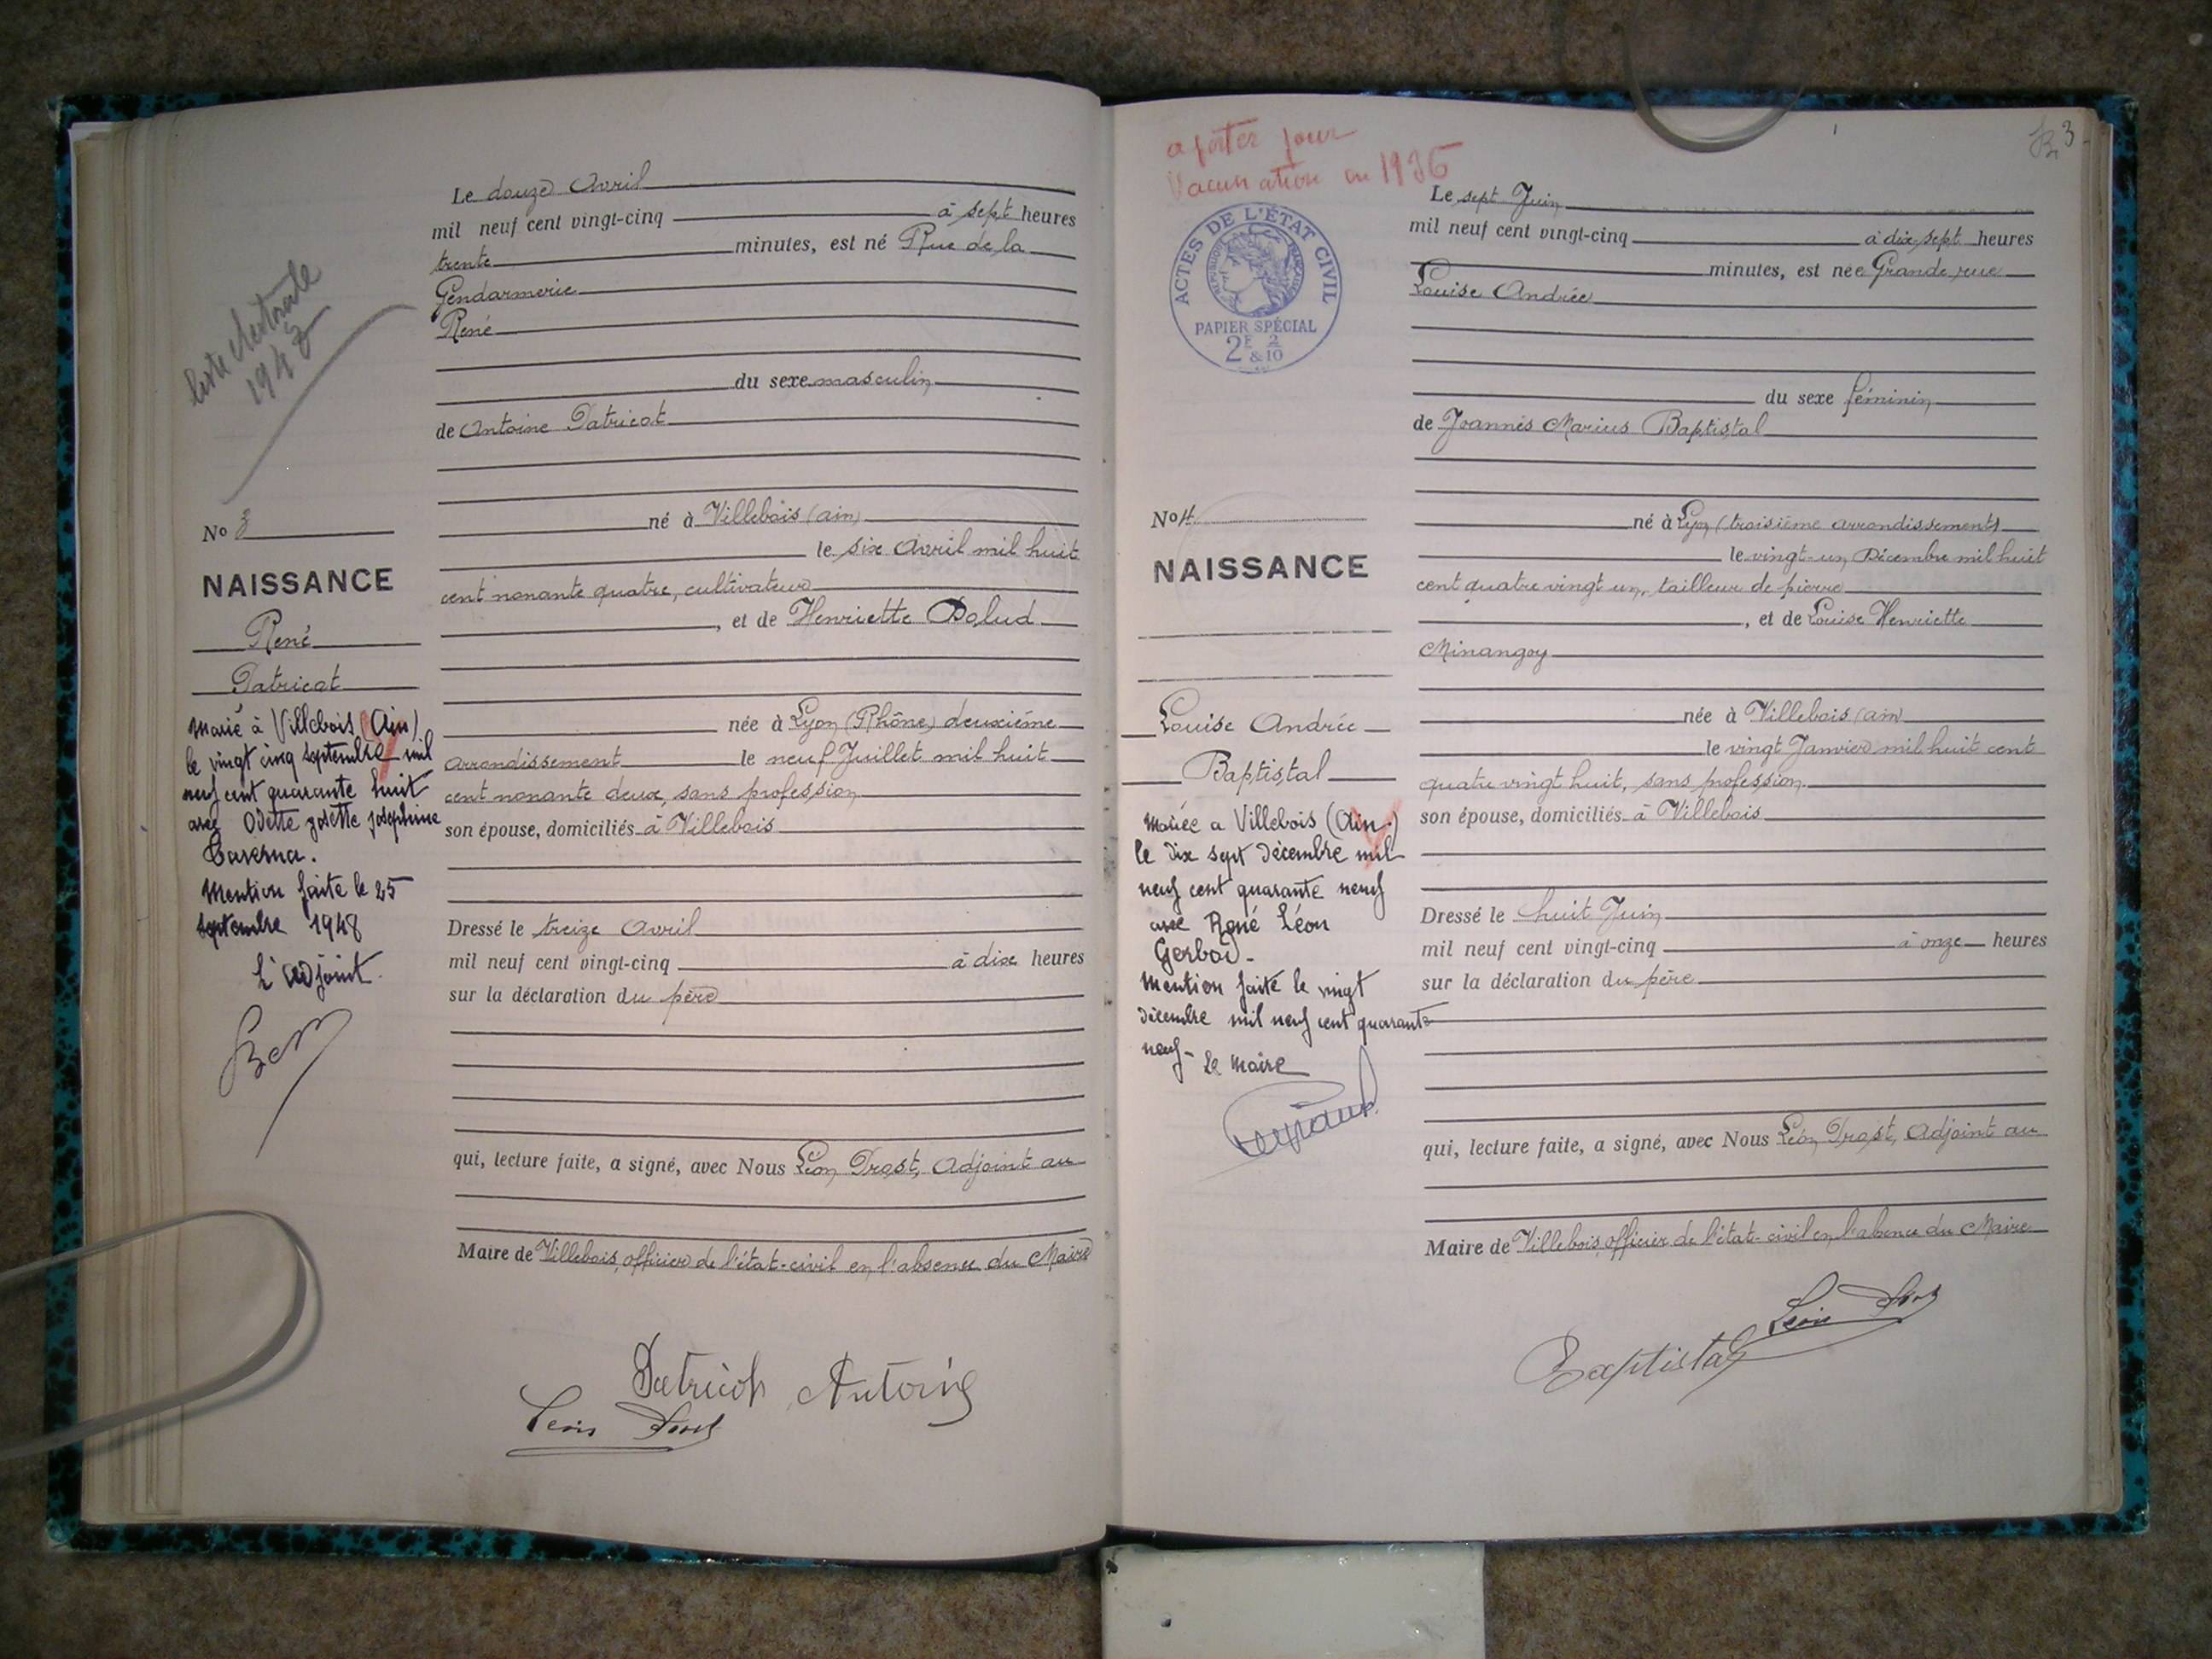 liste électorale
194
Le douze Avril
mil neuf cent vingt-cinq à sept heures
trente minutes, est né Rue de la
Gendarmerie
René
du sexe masculin
de Antoine Patricot
né à Villebois (ain)
le six Avril mil huit
cent nonante quatre, cultivateur
, et de Henriette Dolud
née à Lyon (Rhône) deuxième
arrondissement le neuf Juillet mil huit
cent nonante deux, sans profession
son épouse, domiciliés à Villebois
Dressé le treize Avril
mil neuf cent vingt-cinq à dix heures
sur la déclaration du père
qui, lecture faite, a signé, avec Nous Léon Drost, Adjoint au
Maire de Villebois, officier de l'état-civil en l'absence du Maire
Patricot Antoine
Léon
No 3
NAISSANCE
René
Patricot
Marié à Villebois (Ain)
le vingt cinq septembre mil
neuf cent quarante huit
avec Odette Josette Joséphine
Taverna.
Mention faite le 25
septembre 1948
L'adjoint.
a porter pour
Vaccination en 1936
3
ACTES DE L'ÉTAT CIVIL
RÉPUBLIQUE FRANÇAISE
PAPIER SPÉCIAL
2F 2
& 10
Le sept Juin
mil neuf cent vingt-cinq à dix-sept heures
minutes, est née Grande rue
Louise Andrée
du sexe féminin
de Joannès Marius Baptistal
né à Lyon (troisième arrondissement)
le vingt-un Décembre mil huit
cent quatre vingt un, tailleur de pierre
, et de Louise Henriette
Minangoy
née à Villebois (ain)
le vingt Janvier mil huit cent
quatre vingt huit, sans profession.
son épouse, domiciliés à Villebois
Dressé le huit Juin
mil neuf cent vingt-cinq à onze heures
sur la déclaration du père
qui, lecture faite, a signé, avec Nous Léon Drost, Adjoint au
Maire de Villebois, officier de l'état-civil en l'absence du Maire
Léon
Baptistal
No 4
NAISSANCE
Louise Andrée
Baptistal
Mariée a Villebois (Ain.)
le dix sept décembre mil
neuf cent quarante neuf
avec René Léon
Gerbod -
Mention faite le vingt
décembre mil neuf cent quarante
neuf - Le Maire